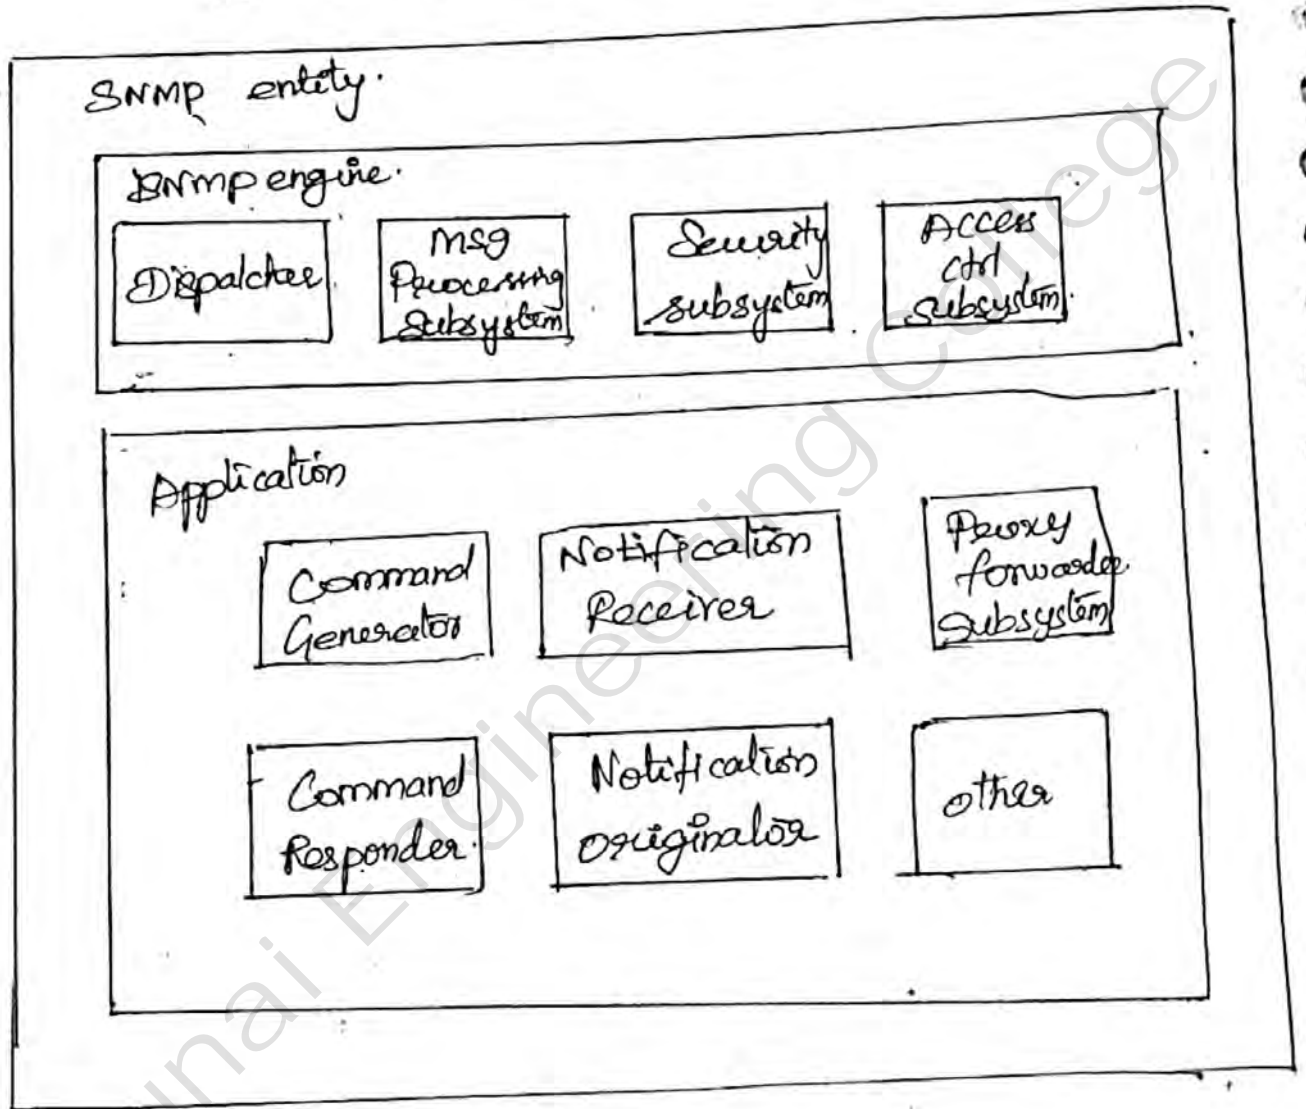 SNMP entity.
SNMP engine.
Dispalcher
msg
Processing
Subsystem
Security
subsystem
Access
ctrl
Subsystem.
Application
Command
Generator
Notification
Receiver
Proxy
forwarder
Subsystem
Command
Responder.
Notification
originator
other
unai Engineering College